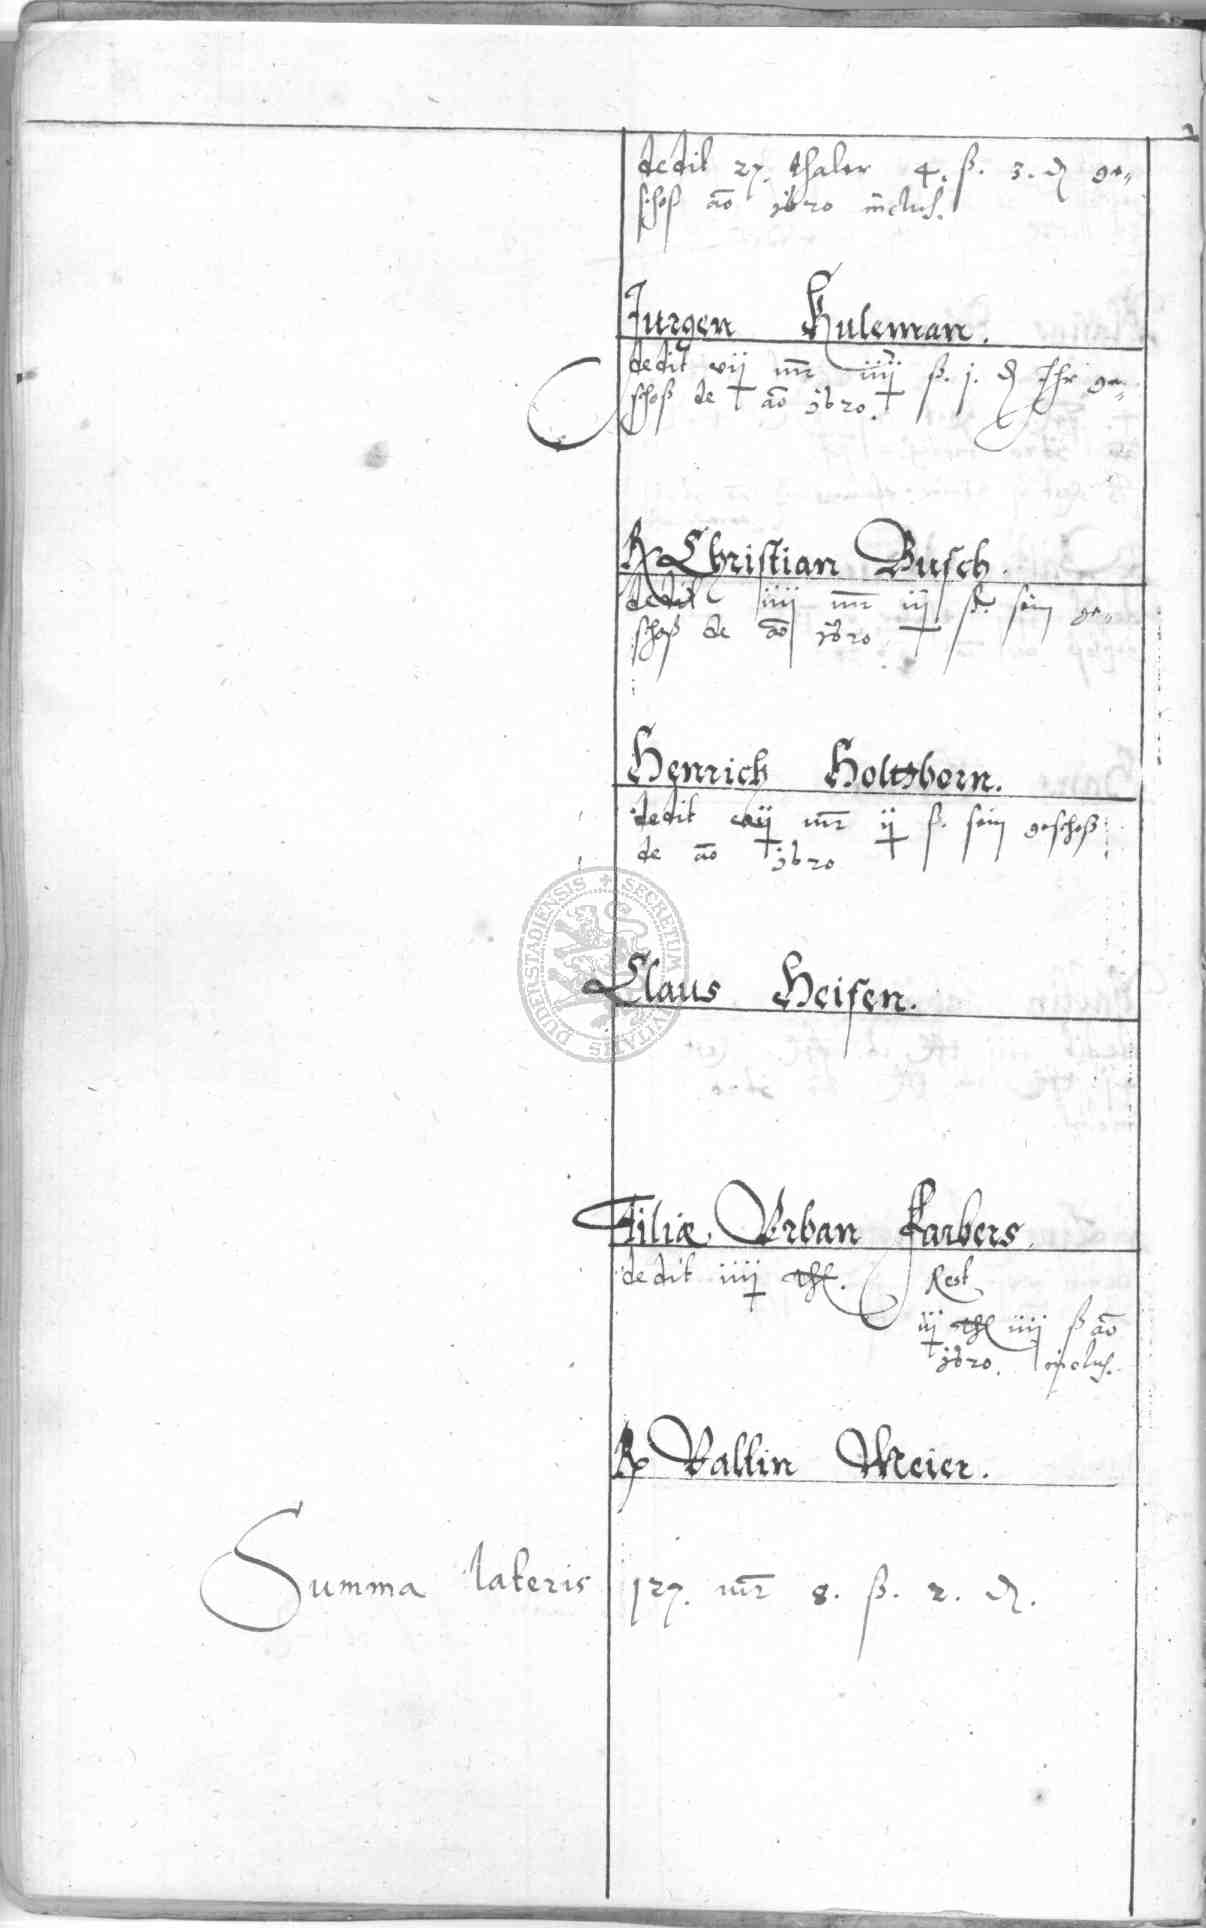 dedit 27. thaler 4. ß. 3. ₰ ge-
schoß ao 1620 inclus.
Jurgen Huleman.
dedit vij mr iiij ß. j. ₰ Ihr ge-
schoß de ao 1620.
Christian Busch.
dedit iiij mr iij ß. sein ge-
schoß de ao 1620
Henrich Holtzborn.
dedit mr ij ß. sein geschoß
de ao 1620
SECRETUM CIVITATIS DUDERSTADIENSIS
Claus Heisen.
Filiæ Urban Farbers.
dedit iiij thl. Rest
iij thl iiij ß ao
1620. inclus.
Valtin Meier.
Summa lateris 127. mr 8. ß. 2. ₰.